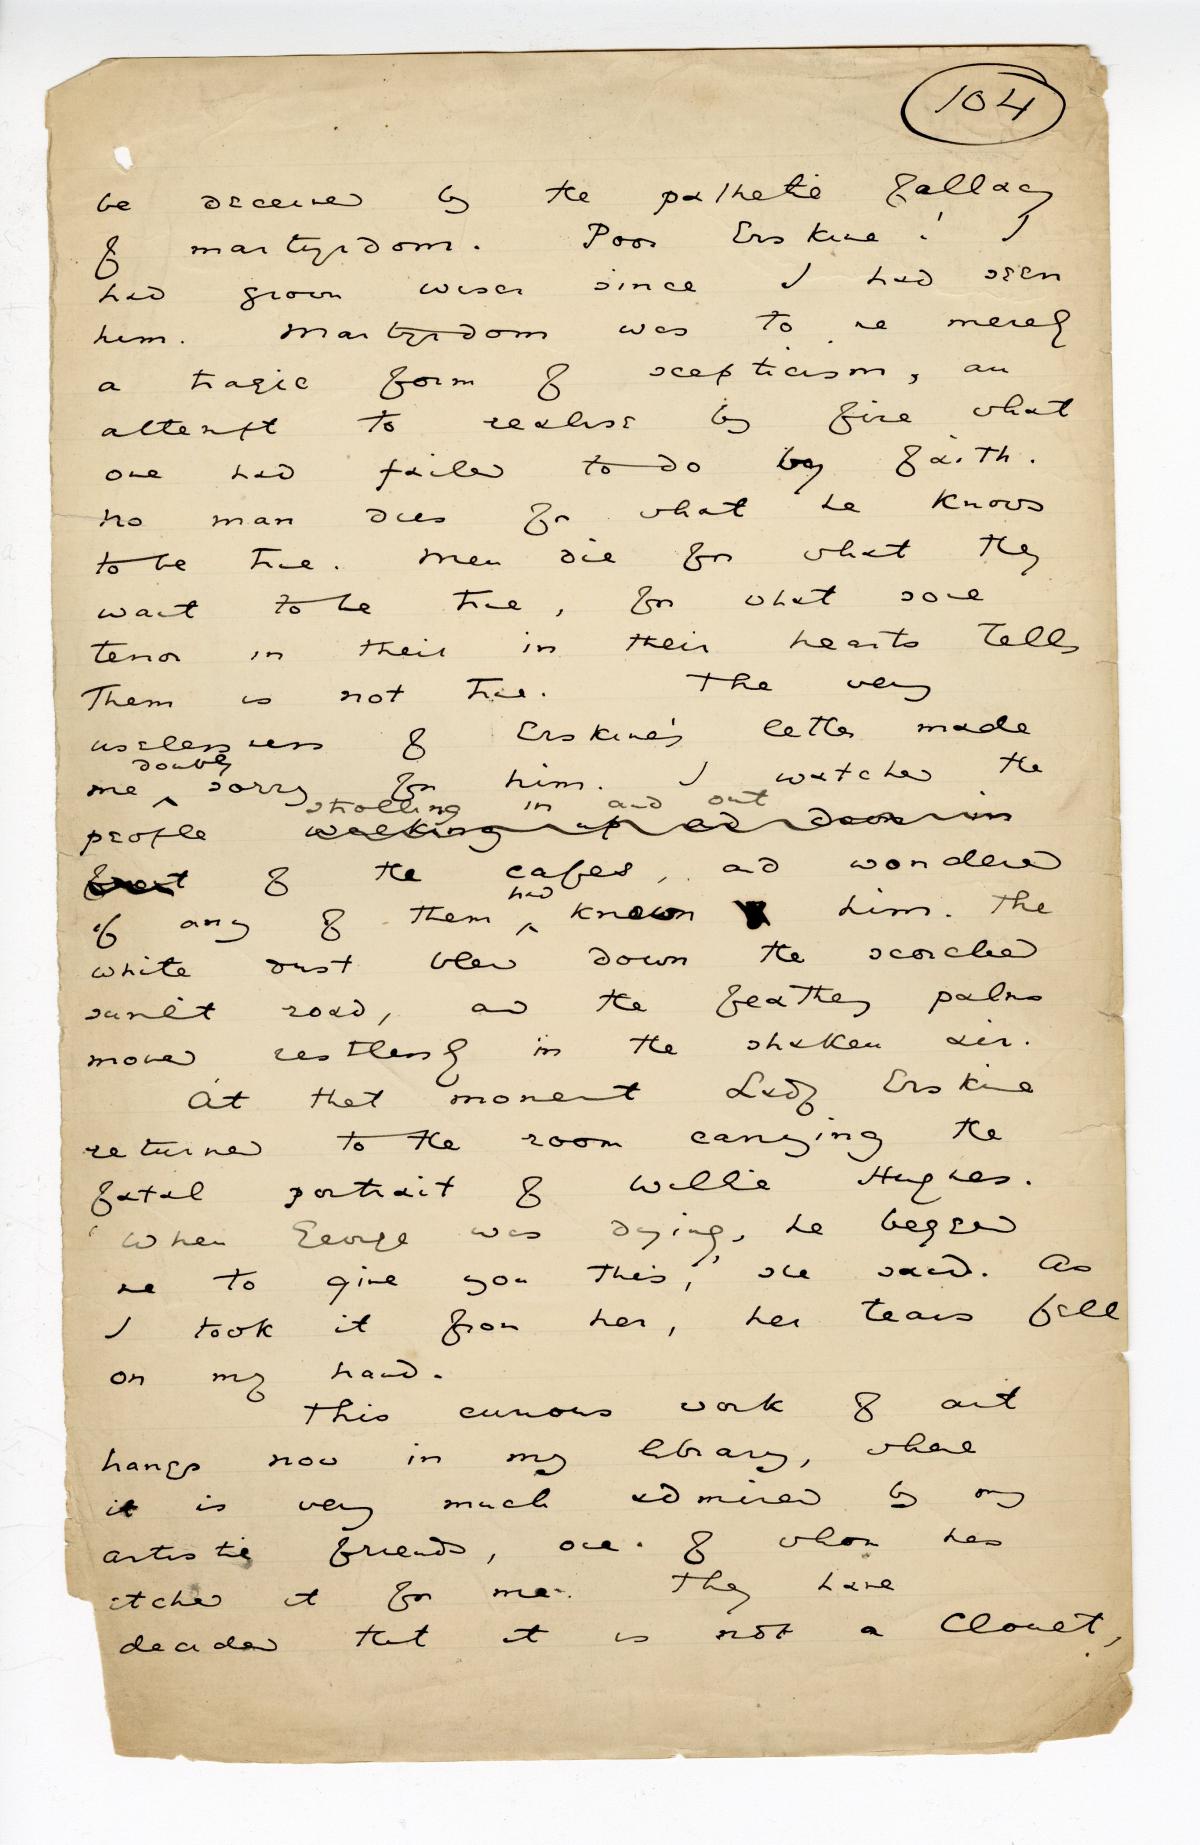 104
be deceived by the pathetic fallacy
of martyrdom. Poor Erskine! I
had grown wiser since I had seen
him. Martyrdom was to me merely
a tragic form of scepticism, an
attempt to realise by fire what
one had failed to do by faith.
No man dies for what he knows
to be true. Men die for what they
want to be true, for what some
terror in their in their hearts tells
them is not true. The very
uselessness of Erskine's letter made
doubly
me ^ sorry for him. I watched the
strolling in and out
people walking up and down in
front of the cafes, and wondered
had
if any of them ^ known him. The
white dust blew down the scorched
sunlit road, and the feathery palms
moved restlessly in the shaken air.
At that moment Lady Erskine
returned to the room carrying the
fatal portrait of Willie Hughes.
'When George was dying, he begged
me to give you this,' she said. As
I took it from her, her tears fell
on my hand.
This curious work of art
hangs now in my library, where
it is very much admired by my
artistic friends, one of whom has
etched it for me. They have
decided that it is not a Clouet,